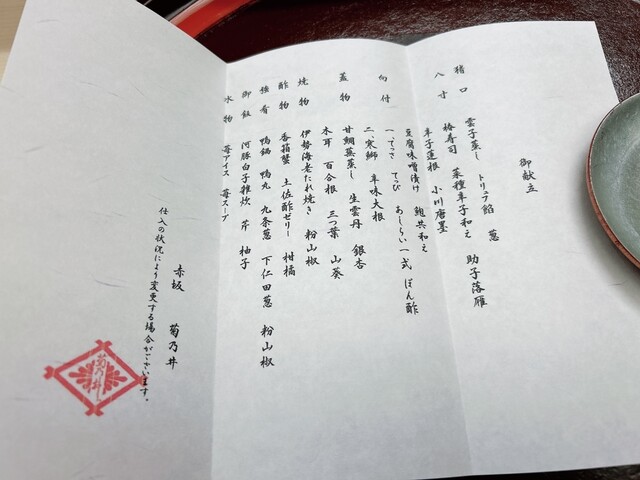 御献立
猪口 雲子蒸し トリュフ餡 葱
八寸 椿寿司 菜種辛子和え 助子落雁
辛子蓮根 小川唐墨
豆腐味噌漬け 鮑共和え
向付 一、てっさ てっぴ あしらい一式 ぽん酢
二、寒鰤 辛味大根
蓋物 甘鯛蕪蒸し 生雲丹 銀杏
木耳 百合根 三つ葉 山葵
焼物 伊勢海老たれ焼き 粉山椒
酢物 香箱蟹 土佐酢ゼリー 柑橘
強肴 鴨鍋 鴨丸 九条葱 下仁田葱 粉山椒
御飯 河豚白子雑炊 芹 柚子
水物 苺アイス 苺スープ
赤坂 菊乃井
仕入の状況により変更する場合がございます。
菊乃井